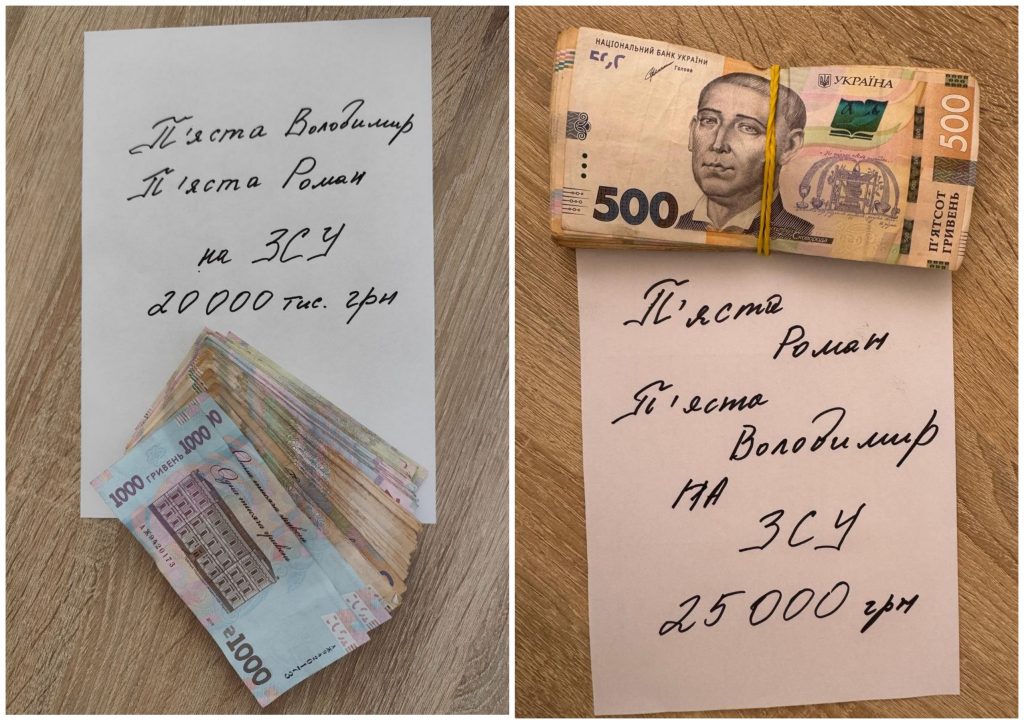 П'яста Володимир
П'яста Роман
на ЗСУ
20000 тис. грн
1000 ГРИВЕНЬ 1000
АЖ9420173
Одна тисяча гривень
1000
НАЦІОНАЛЬНИЙ БАНК УКРАЇНИ
Голова
УКРАЇНА
500
500
П'ЯТСОТ
ГРИВЕНЬ
П'яста
Роман
П'яста
Володимир
НА
ЗСУ
25000 грн